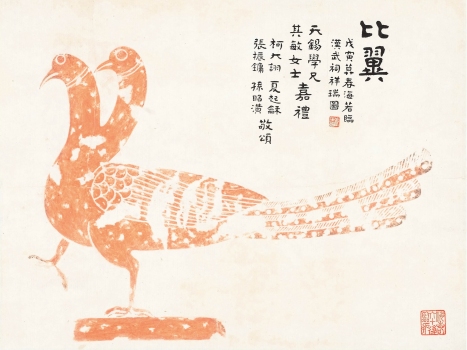 比翼
戊寅莫春海若臨
漢武祠祥瑞圖
天錫學兄
其敏女士
嘉禮
柯大詡 夏起龢
張振鏞 孫昭潢
敬頌